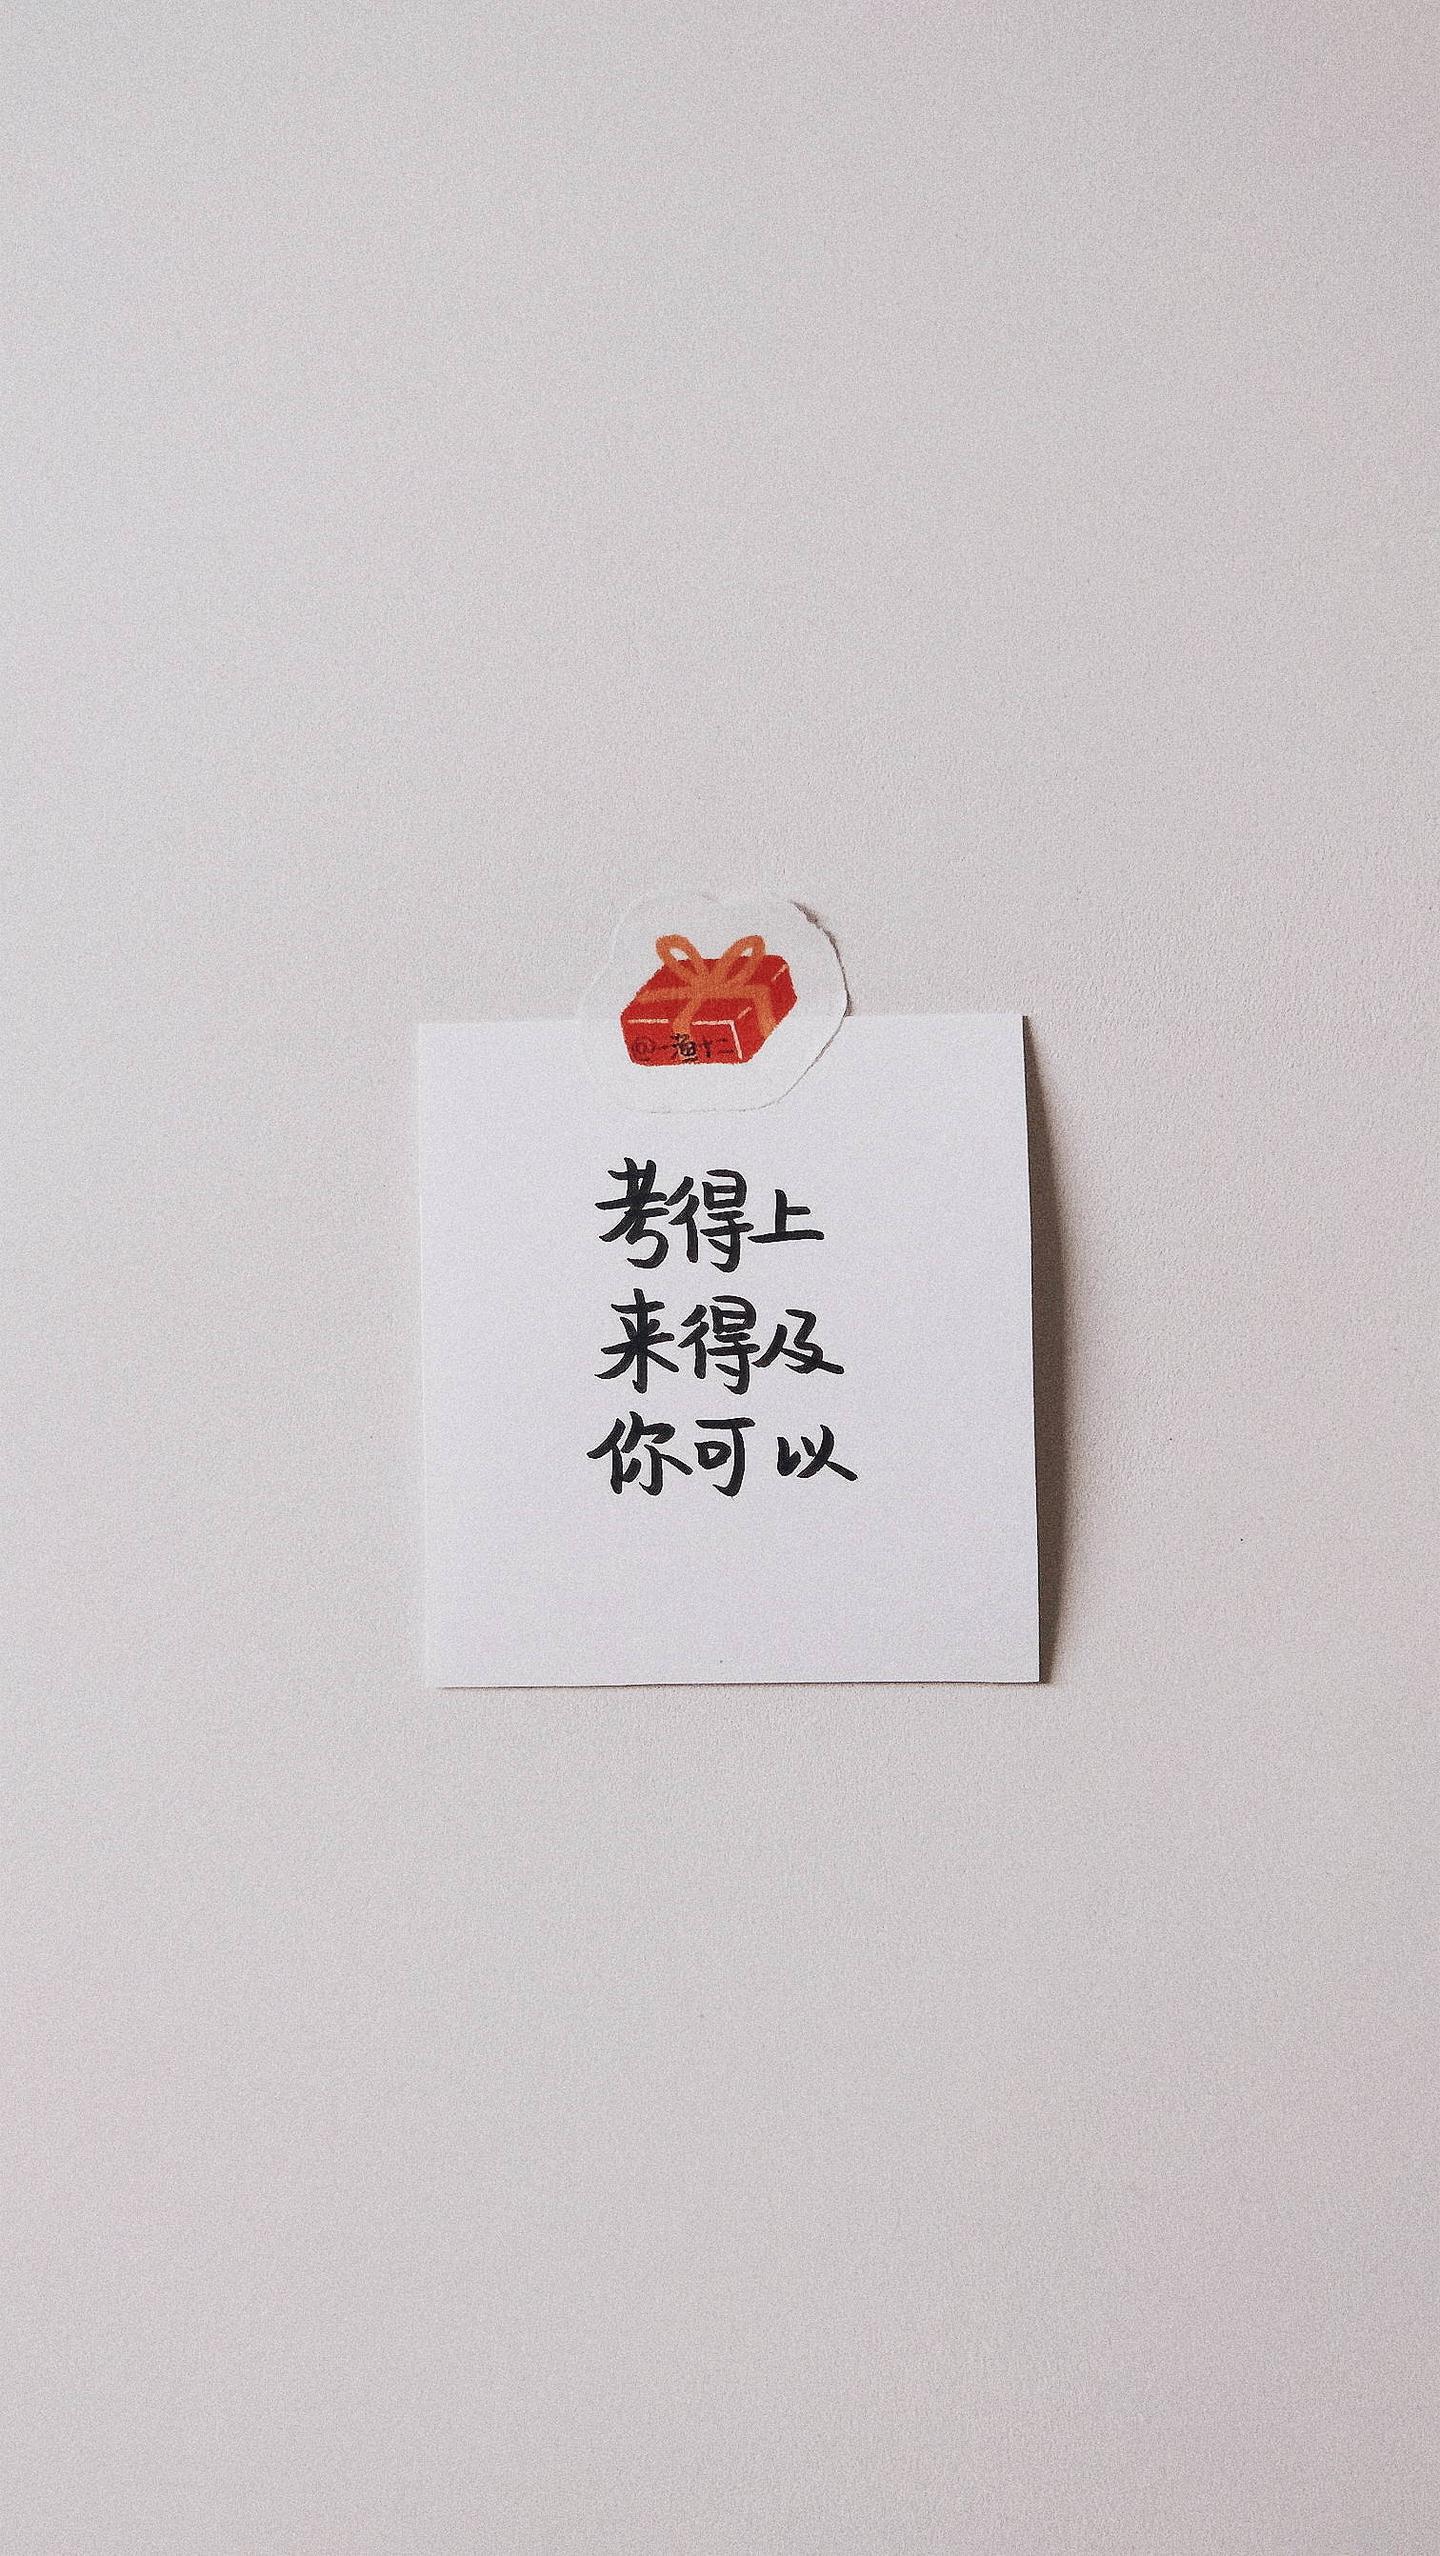 @一渔十二
考得上
来得及
你可以